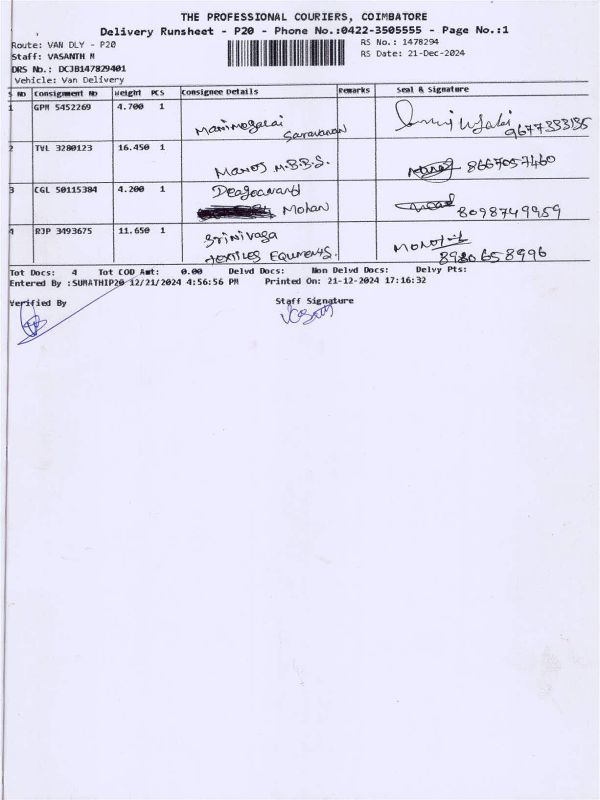 THE PROFESSIONAL COURIERS, COIMBATORE
Delivery Runsheet - P20 - Phone No.:0422-3505555 - Page No.:1
Route: VAN DLY - P20
RS No.: 1478294
Staff: VASANTH M
RS Date: 21-Dec-2024
DRS No.: DCJB147829401
Vehicle: Van Delivery
S No Consignment No Weight PCS Consignee Details Remarks Seal & Signature
1 GPM 5452269 4.700 1
Manimegalai Saravanan
9677333135
2 TVL 3280123 16.450 1
Manoj M.B.B.S. 8667057460
3 CGL 50115384 4.200 1
Mohan 8098749959
4 RJP 3493675 11.650 1 Srinivasa
TEXTILES EQUMENTS.
658996
Tot Docs: 4 Tot COD Amt: 0.00 Delvd Docs: Non Delvd Docs: Delvy Pts:
Entered By :SUMATHIP20 12/21/2024 4:56:56 PM Printed On: 21-12-2024 17:16:32
Verified By Staff Signature